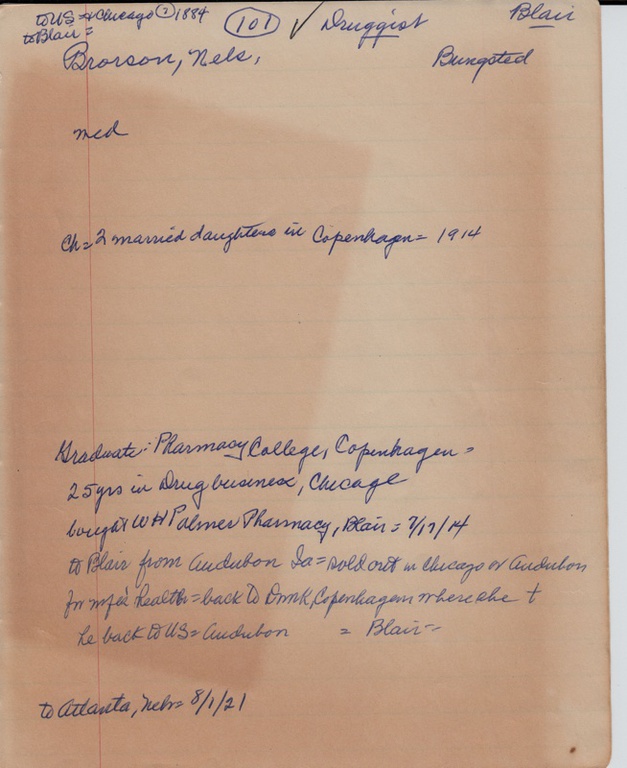 to US = Chicago (?) 1884 (101) ✓ Druggist Blair
to Blair =
Brorson, Nels, Bungsted
med
Ch = 2 married daughters in Copenhagen = 1914
Graduate: Pharmacy College, Copenhagen =
25 yrs in Drug business, Chicago
bought WH Palmer Pharmacy, Blair = 7/17/14
to Blair from Audubon Ia = sold out in Chicago or Audubon
for wife's health = back to Dmk, Copenhagen where she †
he back to US = Audubon = Blair =
to Atlanta, Nebr = 8/1/21